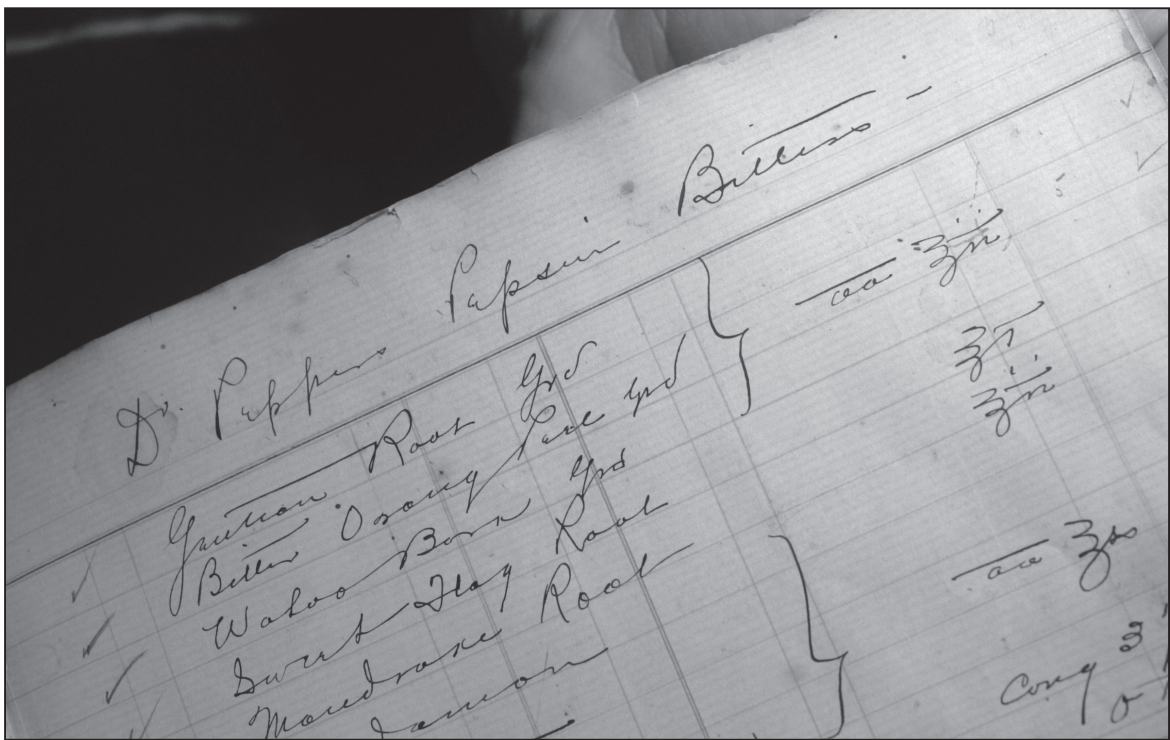 Dr. Peppers Pepsin Bitters –
Gentian Root Grd
Bitter Orang Peel Grd
aa ℥ii
Wahoo Bark Grd ℥i
Sweet Flag Root ℥ii
Mandrake Root
aa ℥ss
Cong 3